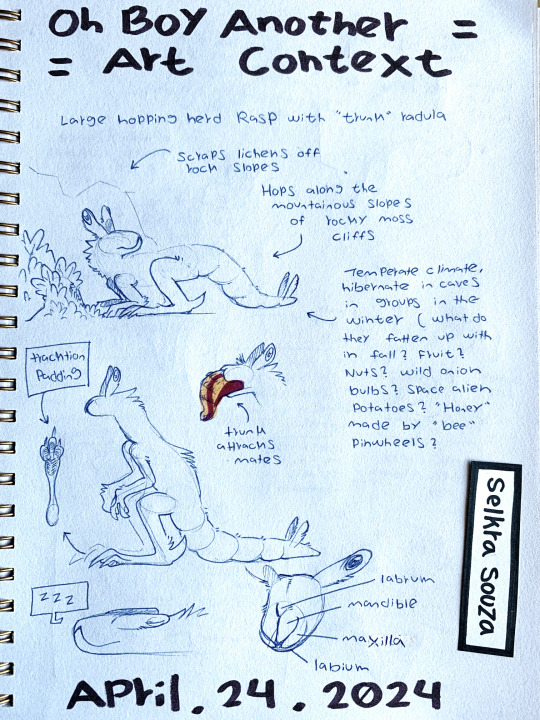 Oh Boy Another =
= Art Context
Large hopping herd Rasp with "trunk" radula
Scraps lichens off
rock slopes
Hops along the
mountainous slopes
of rocky moss
cliffs
Temperate climate,
hibernate in caves
in groups in the
winter ( what do
they fatten up with
in fall? Fruit?
Nuts? wild onion
bulbs? Space alien
Potatoes? "Honey"
made by "bee"
Pinwheels?
trachtion
Padding
trunk
attracks
mates
Selkta Souza
zzz
labrum
mandible
maxilla
labium
April. 24. 2024